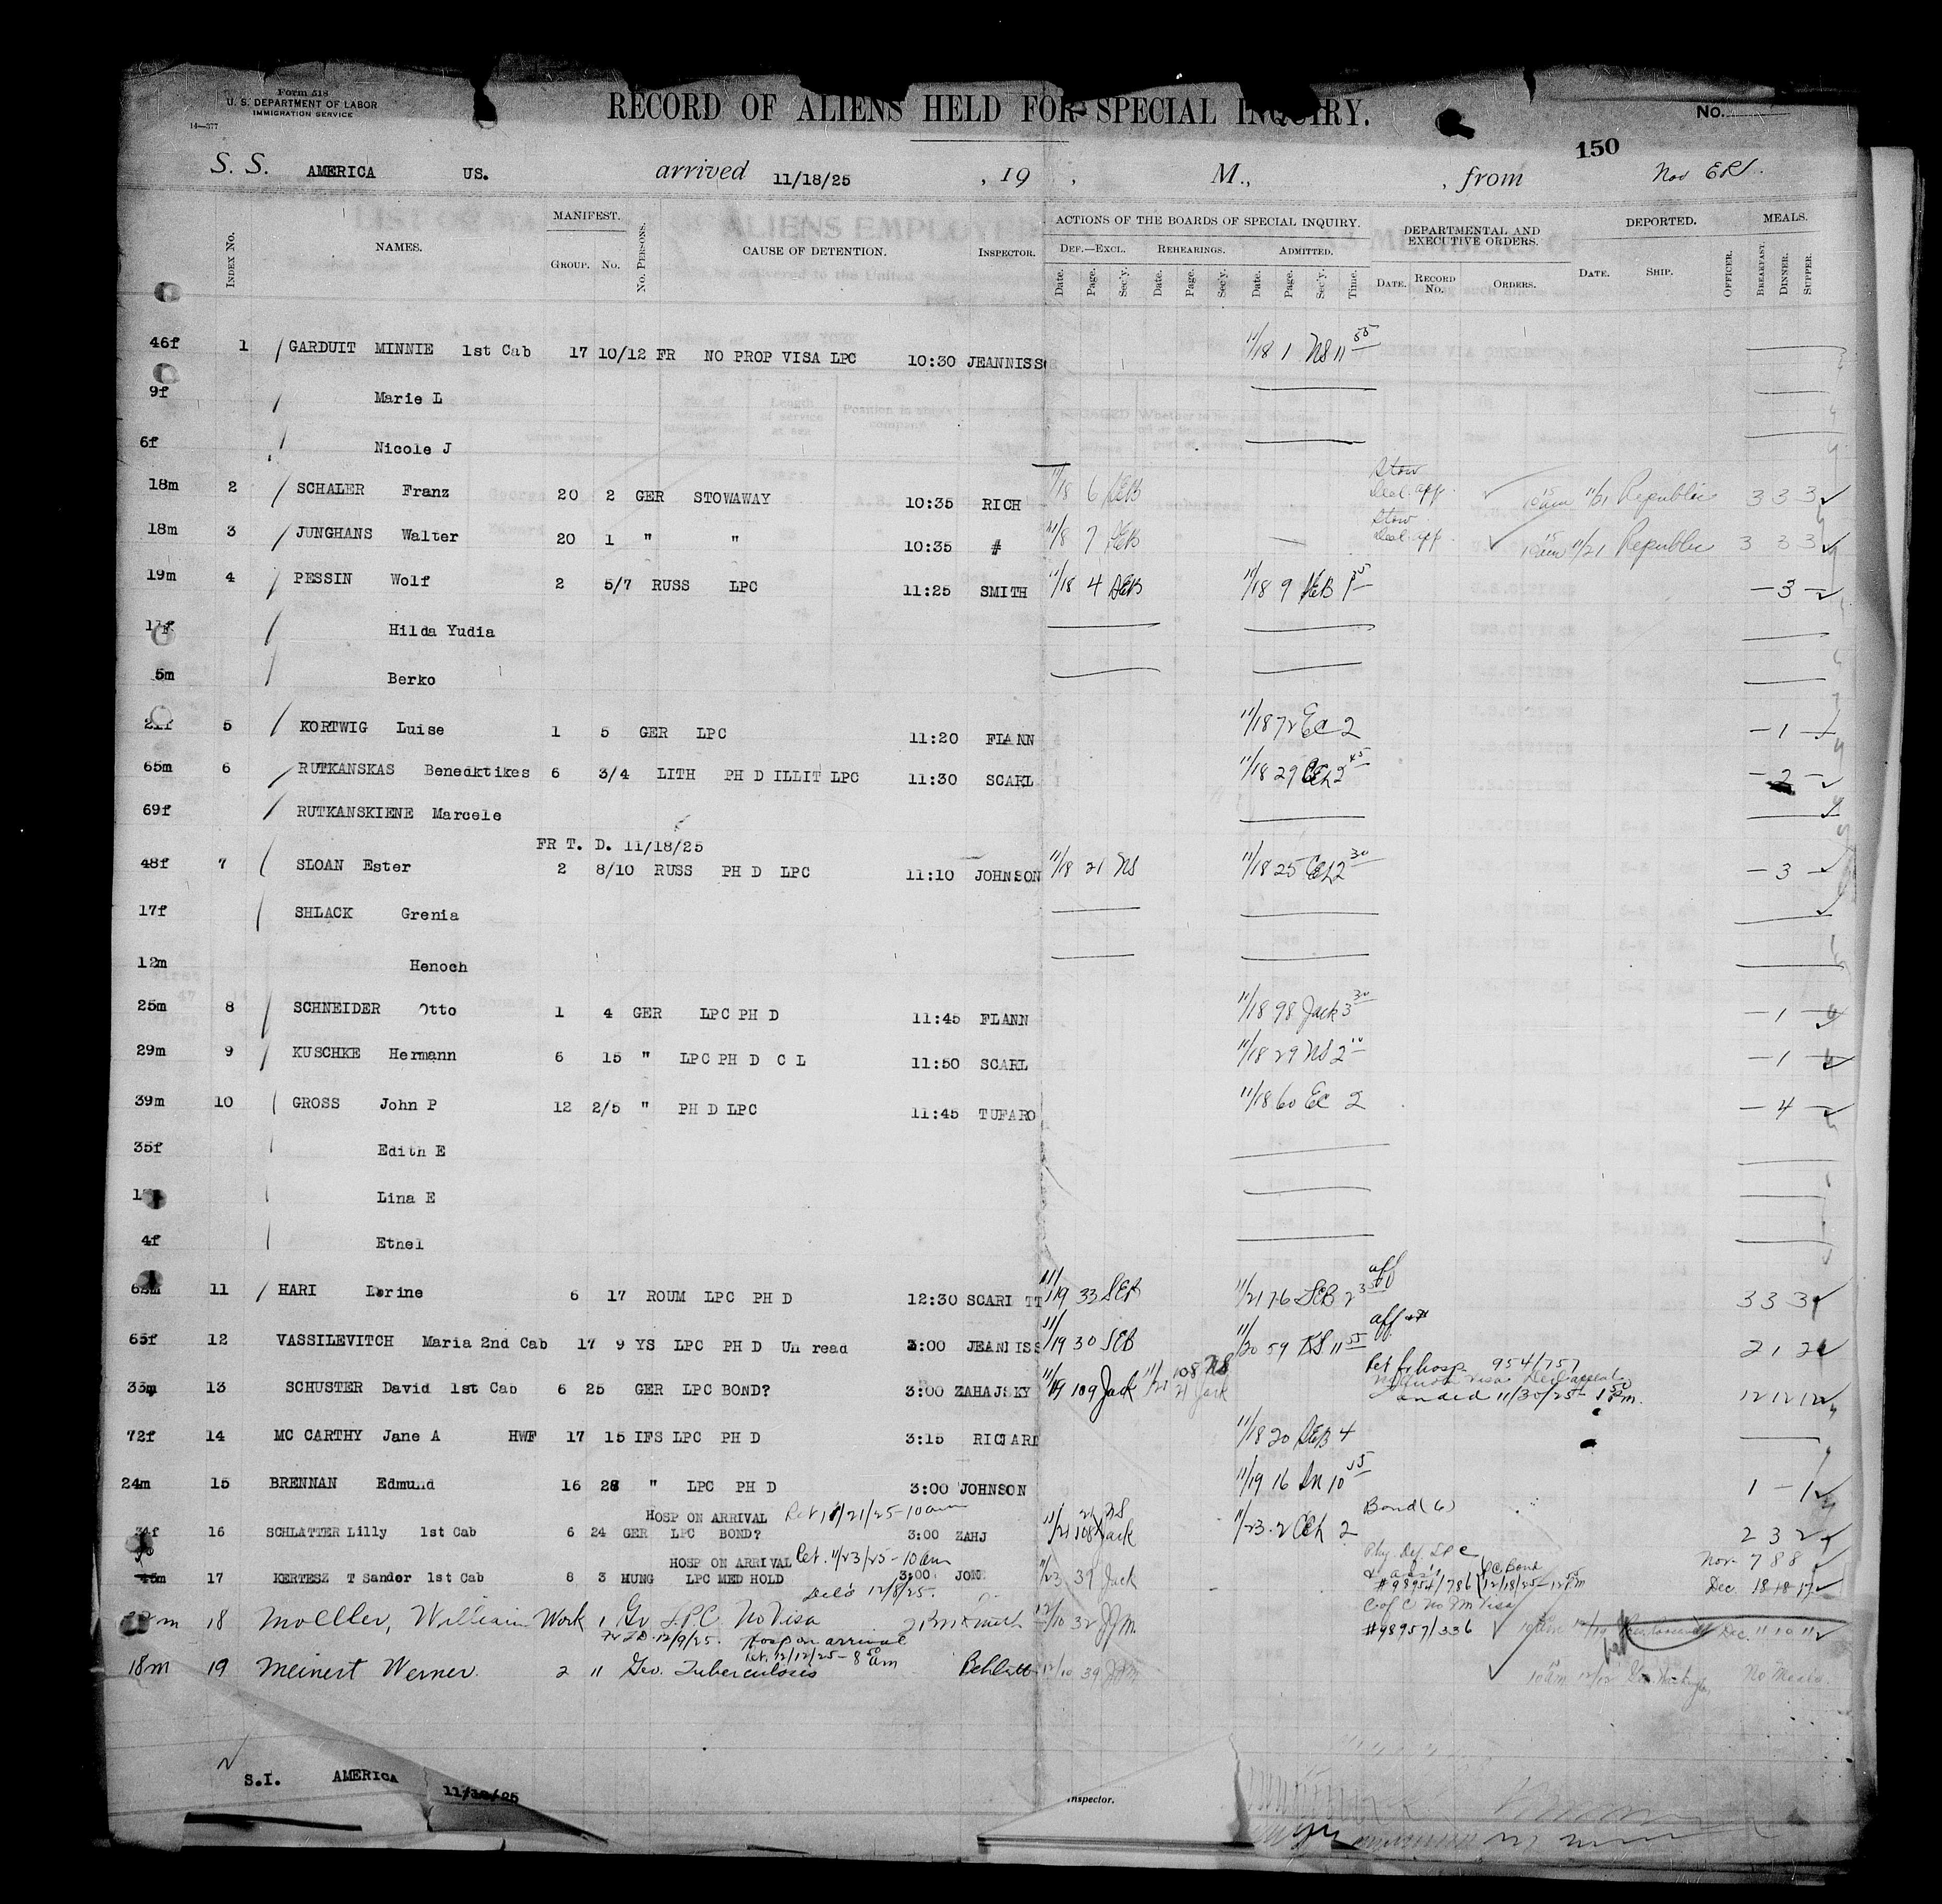 Form 518
U. S. DEPARTMENT OF LABOR
IMMIGRATION SERVICE
14—577
RECORD OF ALIENS HELD FOR SPECIAL INQUIRY.
No.
150
S. S. AMERICA US. arrived 11/18/25 , 19 , M., , from Nov
Index No. NAMES. MANIFEST. Group. No. No. Persons. CAUSE OF DETENTION. Inspector. ACTIONS OF THE BOARDS OF SPECIAL INQUIRY. Def.—Excl. Date. Page. Sec'y. Rehearings. Date. Page. Sec'y. Admitted. Date. Page. Sec'y. Time. DEPARTMENTAL AND EXECUTIVE ORDERS. Date. Record No. Orders. DEPORTED. Date. Ship. Officer. MEALS. Breakfast. Dinner. Supper.
46f 1 / GARDUIT MINNIE 1st Cab 17 10/12 FR NO PROP VISA LPC 10:30 JEANNISS 11/18 1 NS 11 55
9f / Marie L
6f / Nicole J
18m 2 / SCHALER Franz 20 2 GER STOWAWAY 10:35 RICH 11/18 6 DEB Stow app. 11/21 Republic 3 3 3
18m 3 / JUNGHANS Walter 20 1 " " 10:35 # 11/8 7 DEB Stow app. 11/21 Republic 3 3 3
19m 4 / PESSIN Wolf 2 5/7 RUSS LPC 11:25 SMITH 11/18 4 DEB 11/18 9 DEB — 3 —
/ Hilda Yudia
5m / Berko
5 / KORTWIG Luise 1 5 GER LPC 11:20 FLANN 11/18 72 EC 2 — 1 —
65m 6 / RUTKANSKAS Benedktikes 6 3/4 LITH PH D ILLIT LPC 11:30 SCARL 11/18 29 CEL 2 45 — 2 —
69f / RUTKANSKIENE Marcele
FR T. D. 11/18/25
48f 7 / SLOAN Ester 2 8/10 RUSS PH D LPC 11:10 JOHNSON 11/18 21 NS 11/18 25 CEL 2 30 — 3 —
17f / SHLACK Grenia
12m Henoch
25m 8 / SCHNEIDER Otto 1 4 GER LPC PH D 11:45 FLANN 11/18 98 Jack 3 30 — 1 —
29m 9 / KUSCHKE Hermann 6 15 " LPC PH D C L 11:50 SCARL 11/18 29 NS 2 10 — 1 —
39m 10 / GROSS John P 12 2/5 " PH D LPC 11:45 TUFARO 11/18 60 EC 2 — 4 —
35f / Edith E
/ Lina E
4f / Ethel
11 / HARI Lorine 6 17 ROUM LPC PH D 12:30 SCARL TT 11/19 33 SEB 11/21 76 SEB 2 3 3 3
65f 12 VASSILEVITCH Maria 2nd Cab 17 9 YS LPC PH D Un read 3:00 JEANISS 11/19 30 SEB 11/20 59 KS 11 55 aff 2 1 2
33m 13 SCHUSTER David 1st Cab 6 25 GER LPC BOND? 3:00 ZAHAJSKY 11/19 109 Jack 11/21 108 NS 21 Jack 954/757 Landed 11/30/25 12 12 12
72f 14 MC CARTHY Jane A HWF 17 15 IFS LPC PH D 3:15 RICHARD 11/18 20 DEB 4
24m 15 BRENNAN Edmund 16 28 " LPC PH D 3:00 JOHNSON 11/19 16 10 1 — 1
HOSP ON ARRIVAL Ret. 11/21/25 - 10 am
16 SCHLATTER Lilly 1st Cab 6 24 GER LPC BOND? 3:00 ZAHJ 11/21 108 Jack 11/23 2 CEL 2 Bond (6) 2 3 2
HOSP ON ARRIVAL Ret. 11/23/25 - 10 am
17 KERTESZ T Sandor 1st Cab 8 3 HUNG LPC MED HOLD 3:00 11/23 39 Jack #98954/786 12/18/25 Nov 7 8 8 Dec. 18 18 17
Del'd 12/8/25.
18 Moeller, William Work 1 Ger LPC No Visa 12/10 32 JJM. #98957/336 Dec. 11 10 11
Fr T.D. 12/9/25. Hosp on arrival
Ret. 12/12/25 - 8 am
18m 19 Meinert Werner. 2 11 Ger. Tuberculosis 12/10 39 No Meals.
S.I. AMERICA 11/18/25
Inspector.